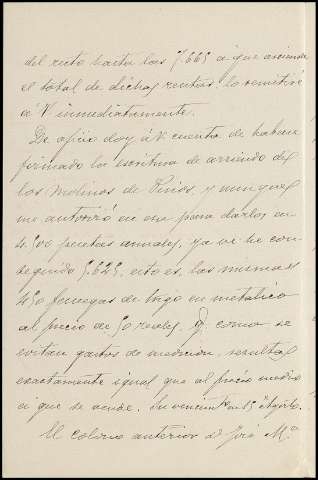 del resto hasta las 7.665 a que asciende
el total de dichas rentas, lo remitiré
á V inmediatamente.
De oficio doy á V. cuenta de haberse
firmado la escritura de arriendo de
los Molinos de Pinos, y aunque
me autorizó en esa para darlos en
4.500 pesetas anuales, ya ve he con
seguido 5.625, esto es, las mismas
450 fanegas de trigo en metalico
al precio de 50 reales, y como se
evitan gastos de medicion, resulta
exactamente igual que al precio medio
á que se vende. Su vencimto. en 15 Agosto.
El colono anterior D José Ma.